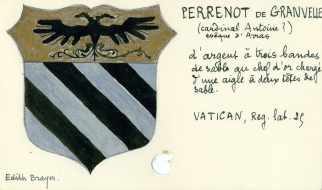 PERRENOT DE GRANVELLE
(cardinal Antoine ?)
évêque d'Arras
d'argent à trois bandes
de sable au chef d'or chargé
d'une aigle à deux têtes de
sable.
VATICAN, Reg. lat. 25
Edith Brayer.